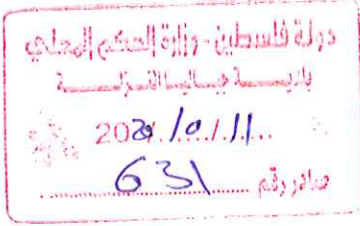 دولة فلسطين - وزارة الحكم المحلي
بلديـــة جباليـا النـزلـــة
2020/10/11
صادر رقم 631